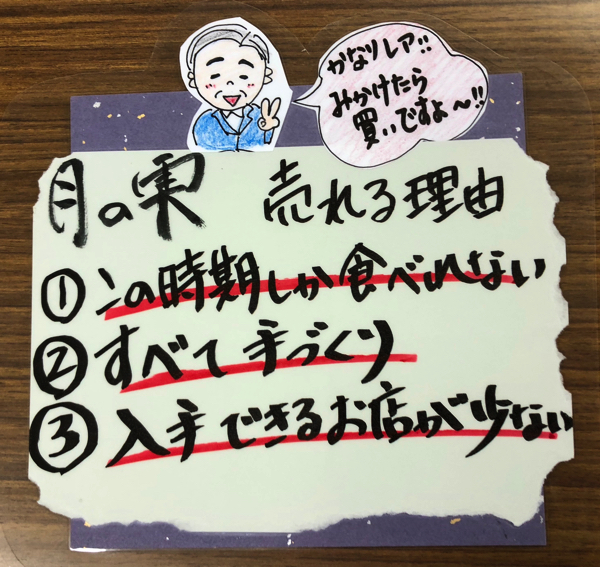 かなりレア!!
みかけたら
買いですよ～!!
月の実 売れる理由
① この時期しか食べれない
② すべて手づくり
③ 入手できるお店が少ない